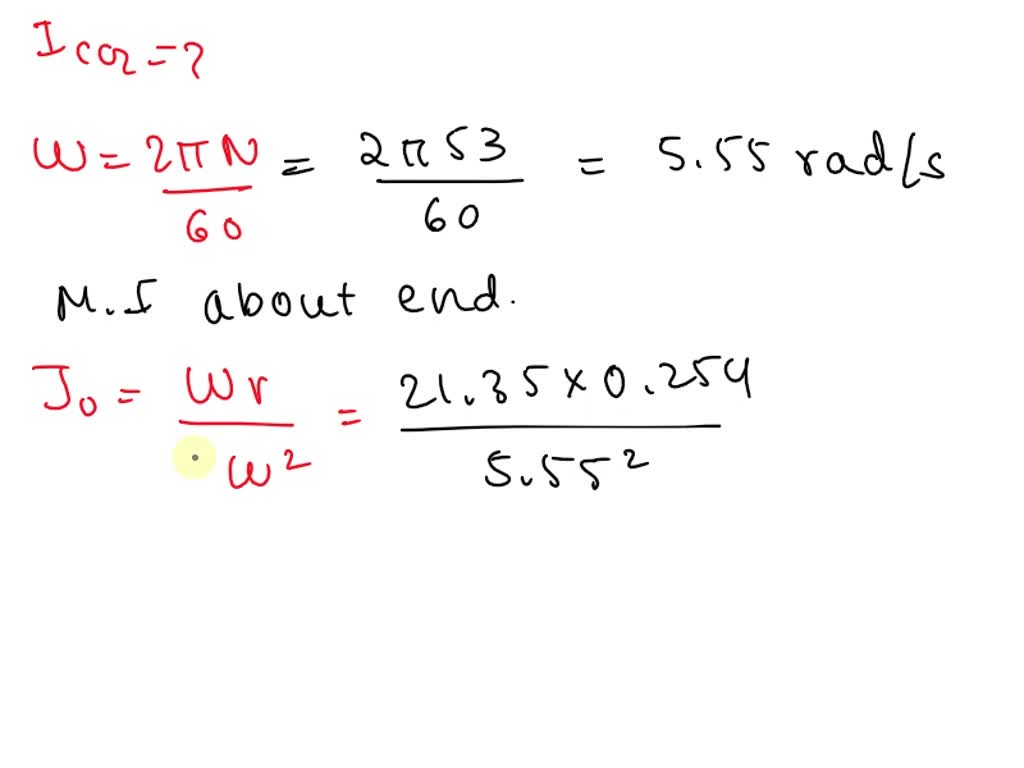 I cor = ?
W = 2πN / 60 = 2π53 / 60 = 5.55 rad/s
M.I about end.
J₀ = Wr / w² = 21.35 × 0.254 / 5.55²